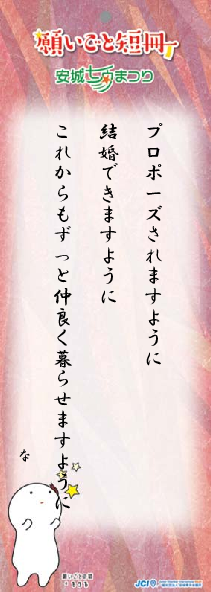 願いごと短冊
安城七夕まつり
プロポーズされますように
結婚できますように
これからもずっと仲良く暮らせますように
な
願いごと短冊
JCI